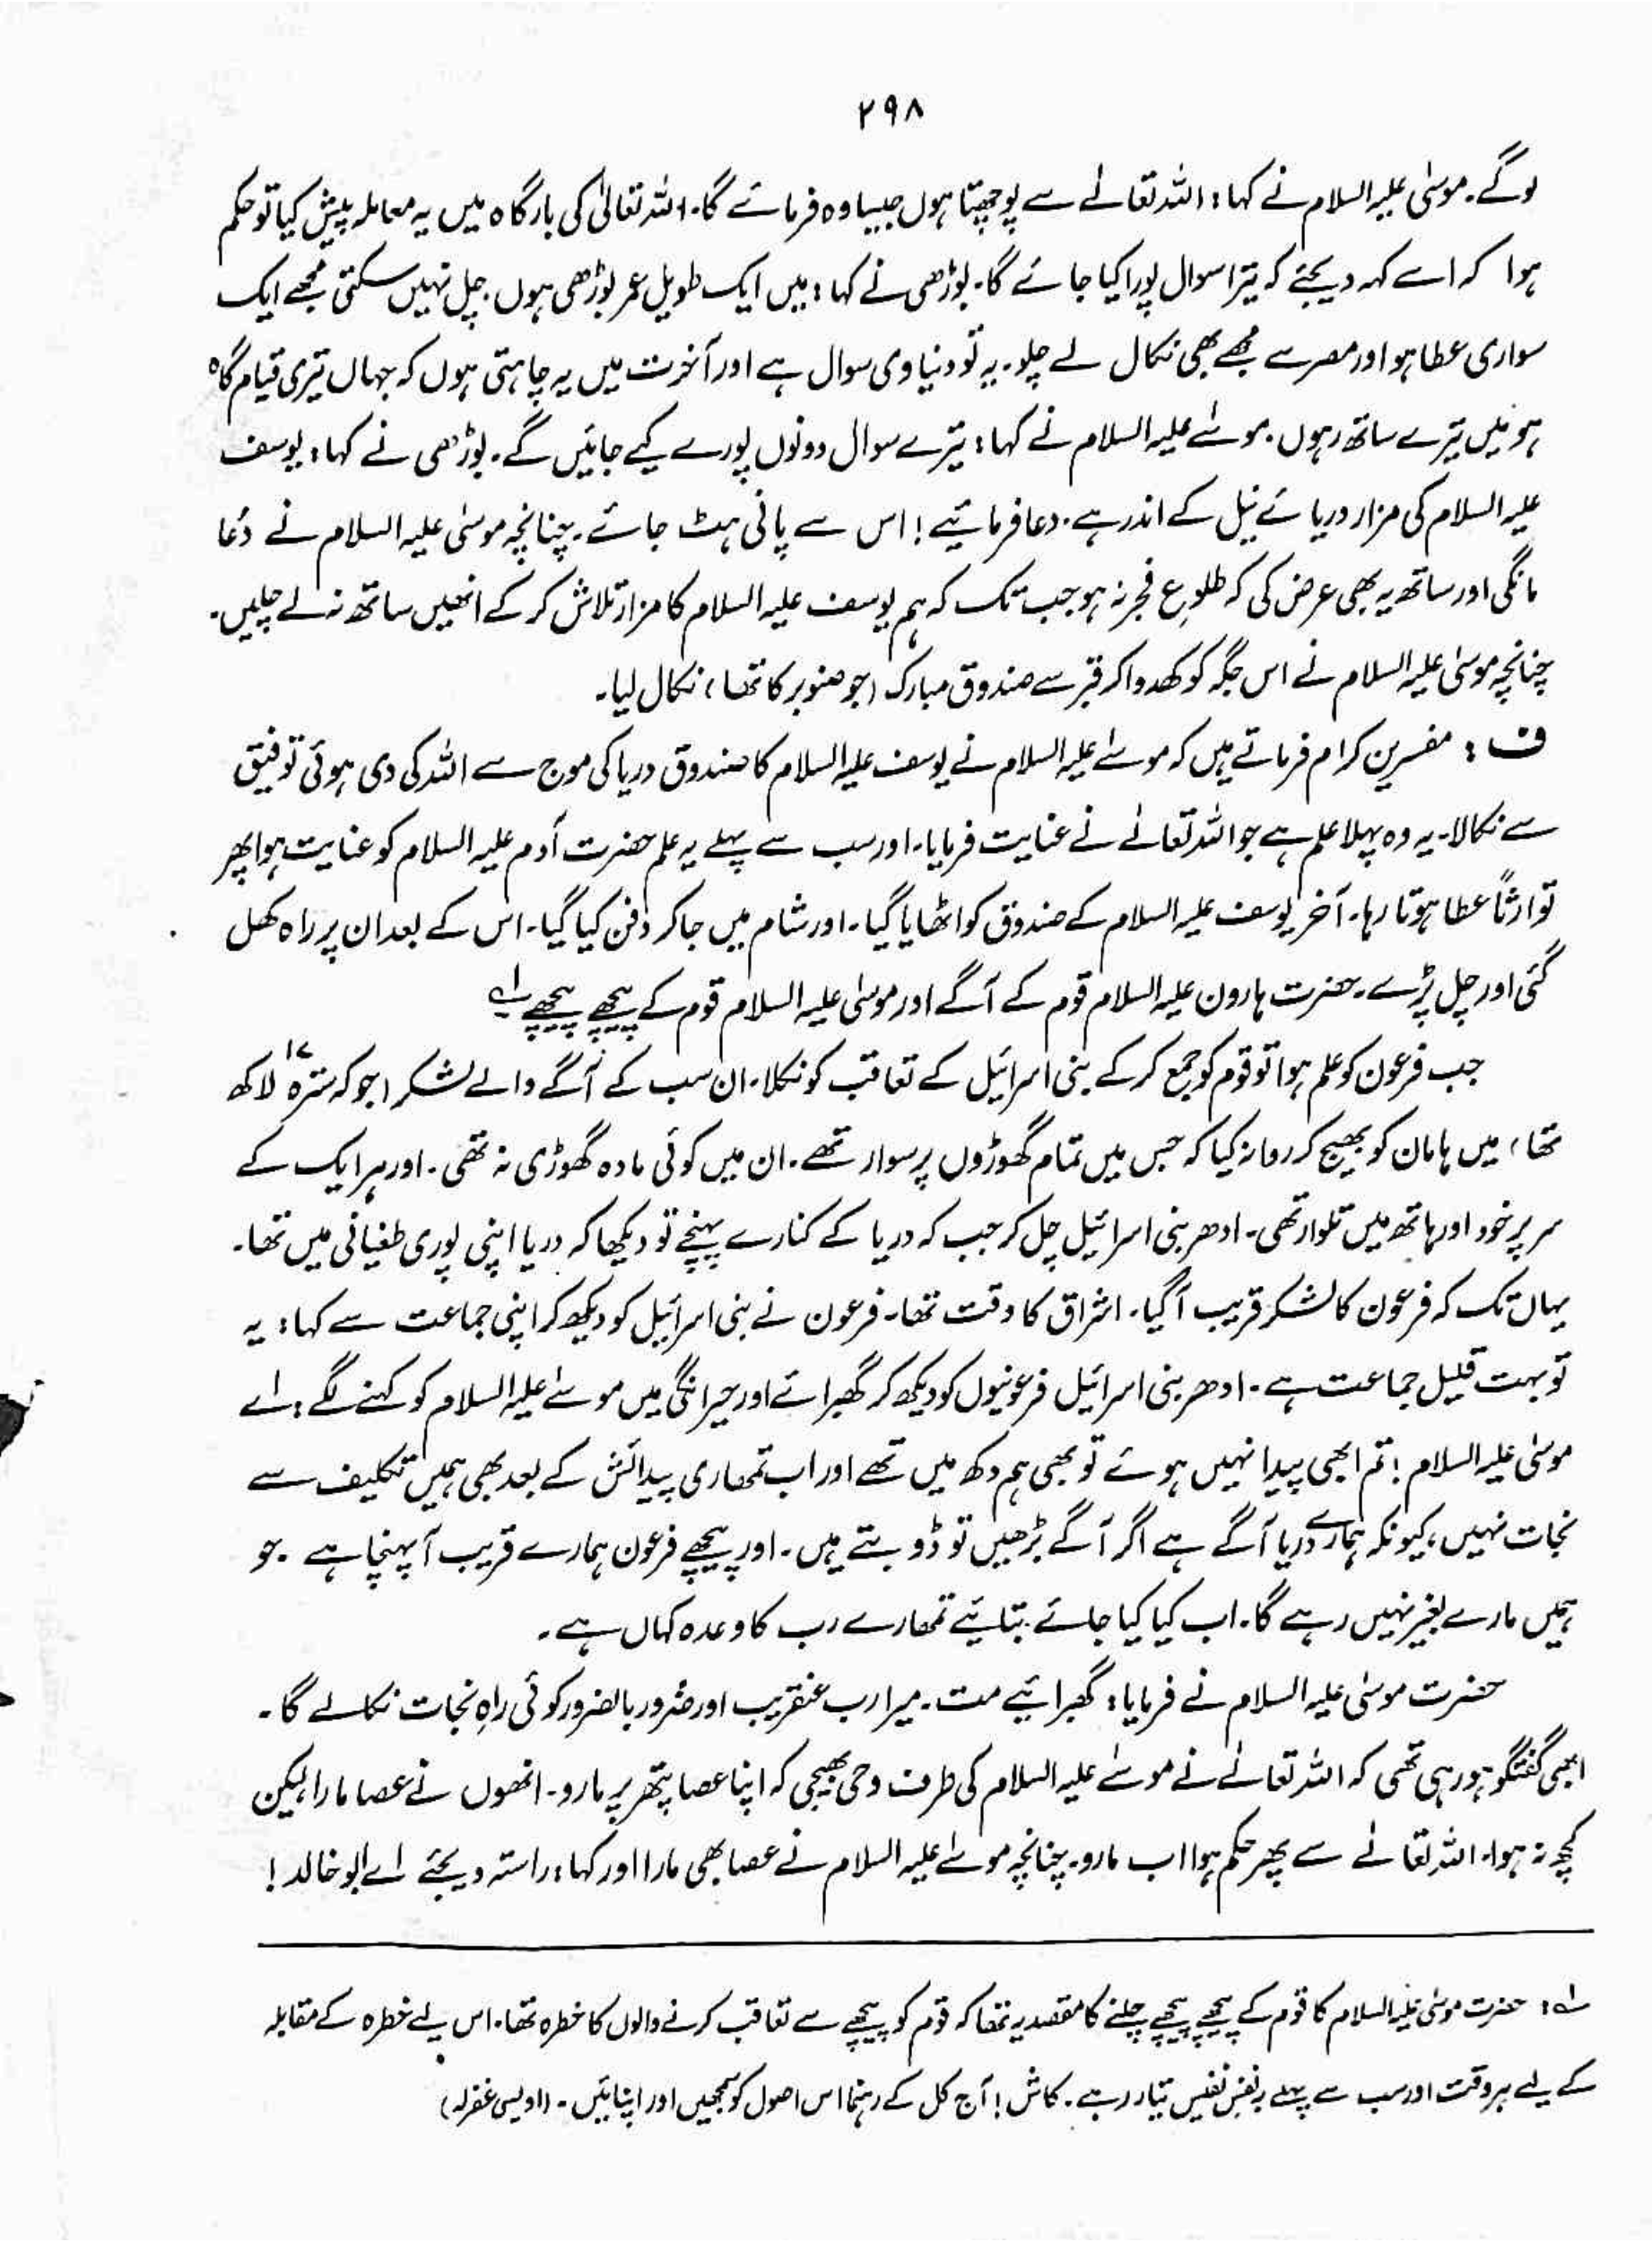 ۲۹۸
لوگے۔ موسیٰ علیہ السلام نے کہا: اللہ تعالےٰ سے پوچھتا ہوں جیسا وہ فرمائے گا۔ اللہ تعالیٰ کی بارگاہ میں یہ معاملہ پیش کیا تو حکم
ہوا کہ اسے کہہ دیجئے کہ تیرا سوال پورا کیا جائے گا۔ بوڑھی نے کہا: میں ایک طویل عمر بوڑھی ہوں۔ چل نہیں سکتی مجھے ایک
سواری عطا ہو اور مصر سے مجھے بھی نکال لے چلو۔ یہ تو دنیاوی سوال ہے اور آخرت میں یہ چاہتی ہوں کہ جہاں تیری قیام گاہ
ہو میں تیرے ساتھ رہوں۔ موسےٰ علیہ السلام نے کہا: تیرے سوال دونوں پورے کیے جائیں گے۔ بوڑھی نے کہا: یوسف
علیہ السلام کی مزار دریائے نیل کے اندر ہے۔ دعا فرمائیے! اس سے پانی ہٹ جائے۔ چنانچہ موسیٰ علیہ السلام نے دُعا
مانگی اور ساتھ یہ بھی عرض کی کہ طلوعِ فجر نہ ہو جب تک کہ ہم یوسف علیہ السلام کا مزار تلاش کر کے انھیں ساتھ نہ لے چلیں۔
چنانچہ موسیٰ علیہ السلام نے اس جگہ کو کھدوا کر قبر سے صندوق مبارک (جو صنوبر کا تھا) نکال لیا۔
ف: مفسرین کرام فرماتے ہیں کہ موسےٰ علیہ السلام نے یوسف علیہ السلام کا صندوق دریا کی موج سے اللہ کی دی ہوئی توفیق
سے نکالا۔ یہ وہ پہلا علم ہے جو اللہ تعالےٰ نے عنایت فرمایا۔ اور سب سے پہلے یہ علم حضرت آدم علیہ السلام کو عنایت ہوا پھر
توارثاً عطا ہوتا رہا۔ آخر یوسف علیہ السلام کے صندوق کو اٹھایا گیا۔ اور شام میں جا کر دفن کیا گیا۔ اس کے بعد ان پر راہ کھل
گئی اور چل پڑے۔ حضرت ہارون علیہ السلام قوم کے آگے اور موسیٰ علیہ السلام قوم کے پیچھے پیچھے لہ
جب فرعون کو علم ہوا تو قوم کو جمع کر کے بنی اسرائیل کے تعاقب کو نکلا۔ ان سب کے آگے والے لشکر (جو کہ سترہ ۱۷ لاکھ
تھا) میں ہامان کو بھیج کر روانہ کیا کہ جس میں تمام گھوڑوں پر سوار تھے۔ ان میں کوئی مادہ گھوڑی نہ تھی۔ اور ہر ایک کے
سر پر خود اور ہاتھ میں تلوار تھی۔ ادھر بنی اسرائیل چل کر جب کہ دریا کے کنارے پہنچے تو دیکھا کہ دریا اپنی پوری طغیانی میں تھا۔
یہاں تک کہ فرعون کا لشکر قریب آ گیا۔ اشراق کا وقت تھا۔ فرعون نے بنی اسرائیل کو دیکھ کر اپنی جماعت سے کہا: یہ
تو بہت قلیل جماعت ہے۔ ادھر بنی اسرائیل فرعونیوں کو دیکھ کر گھبرائے اور حیرانگی میں موسےٰ علیہ السلام کو کہنے لگے: اے
موسیٰ علیہ السلام! تم ابھی پیدا نہیں ہوئے تو بھی ہم دکھ میں تھے اور اب تمھاری پیدائش کے بعد بھی ہمیں تکلیف سے
نجات نہیں، کیونکہ ہمارے دریا آگے ہے اگر آگے بڑھیں تو ڈوبتے ہیں۔ اور پیچھے فرعون ہمارے قریب آ پہنچا ہے۔ جو
ہمیں مارے بغیر نہیں رہے گا۔ اب کیا کیا جائے بتائیے تمھارے رب کا وعدہ کہاں ہے۔
حضرت موسیٰ علیہ السلام نے فرمایا: گھبرائیے مت۔ میرا رب عنقریب اور ضرور بالضرور کوئی راہِ نجات نکالے گا۔
ابھی گفتگو ہو رہی تھی کہ اللہ تعالےٰ نے موسےٰ علیہ السلام کی طرف وحی بھیجی کہ اپنا عصا پتھر پر مارو۔ انھوں نے عصا مارا لیکن
کچھ نہ ہوا۔ اللہ تعالےٰ سے پھر حکم ہوا اب مارو۔ چنانچہ موسےٰ علیہ السلام نے عصا بھی مارا اور کہا: راستہ دیجئے اے ابو خالد!
لہ: حضرت موسیٰ علیہ السلام کا قوم کے پیچھے پیچھے چلنے کا مقصد یہ تھا کہ قوم کو پیچھے سے تعاقب کرنے والوں کا خطرہ تھا۔ اس لیے خطرہ کے مقابلہ
کے لیے ہر وقت اور سب سے پہلے بنفسِ نفیس تیار رہے۔ کاش! آج کل کے رہنما اس اصول کو سمجھیں اور اپنائیں۔ (اویسی غفرلہ)